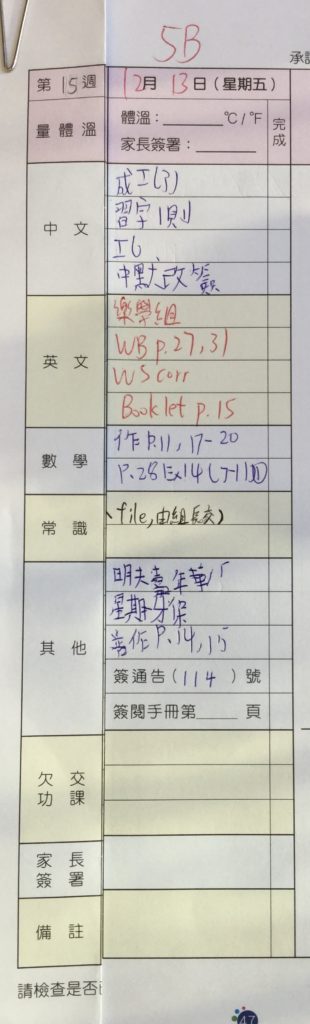 5B
承
第15週 12月13日(星期五)
量體溫 體溫:________°C/°F 完成
家長簽署:________
中文 成工(3)
習字1則
工6
中默改簽
英文 樂學組
WB p.27,31
WS corr
Booklet p.15
數學 作P.11, 17-20
P.28 Ex14(7-11)
常識 file,由組長交)
其他 明夫嘉年華
星期 牙保
P.14,15
簽通告(114)號
簽閱手冊第____頁
欠交功課
家長簽署
備註
請檢查是否已
47